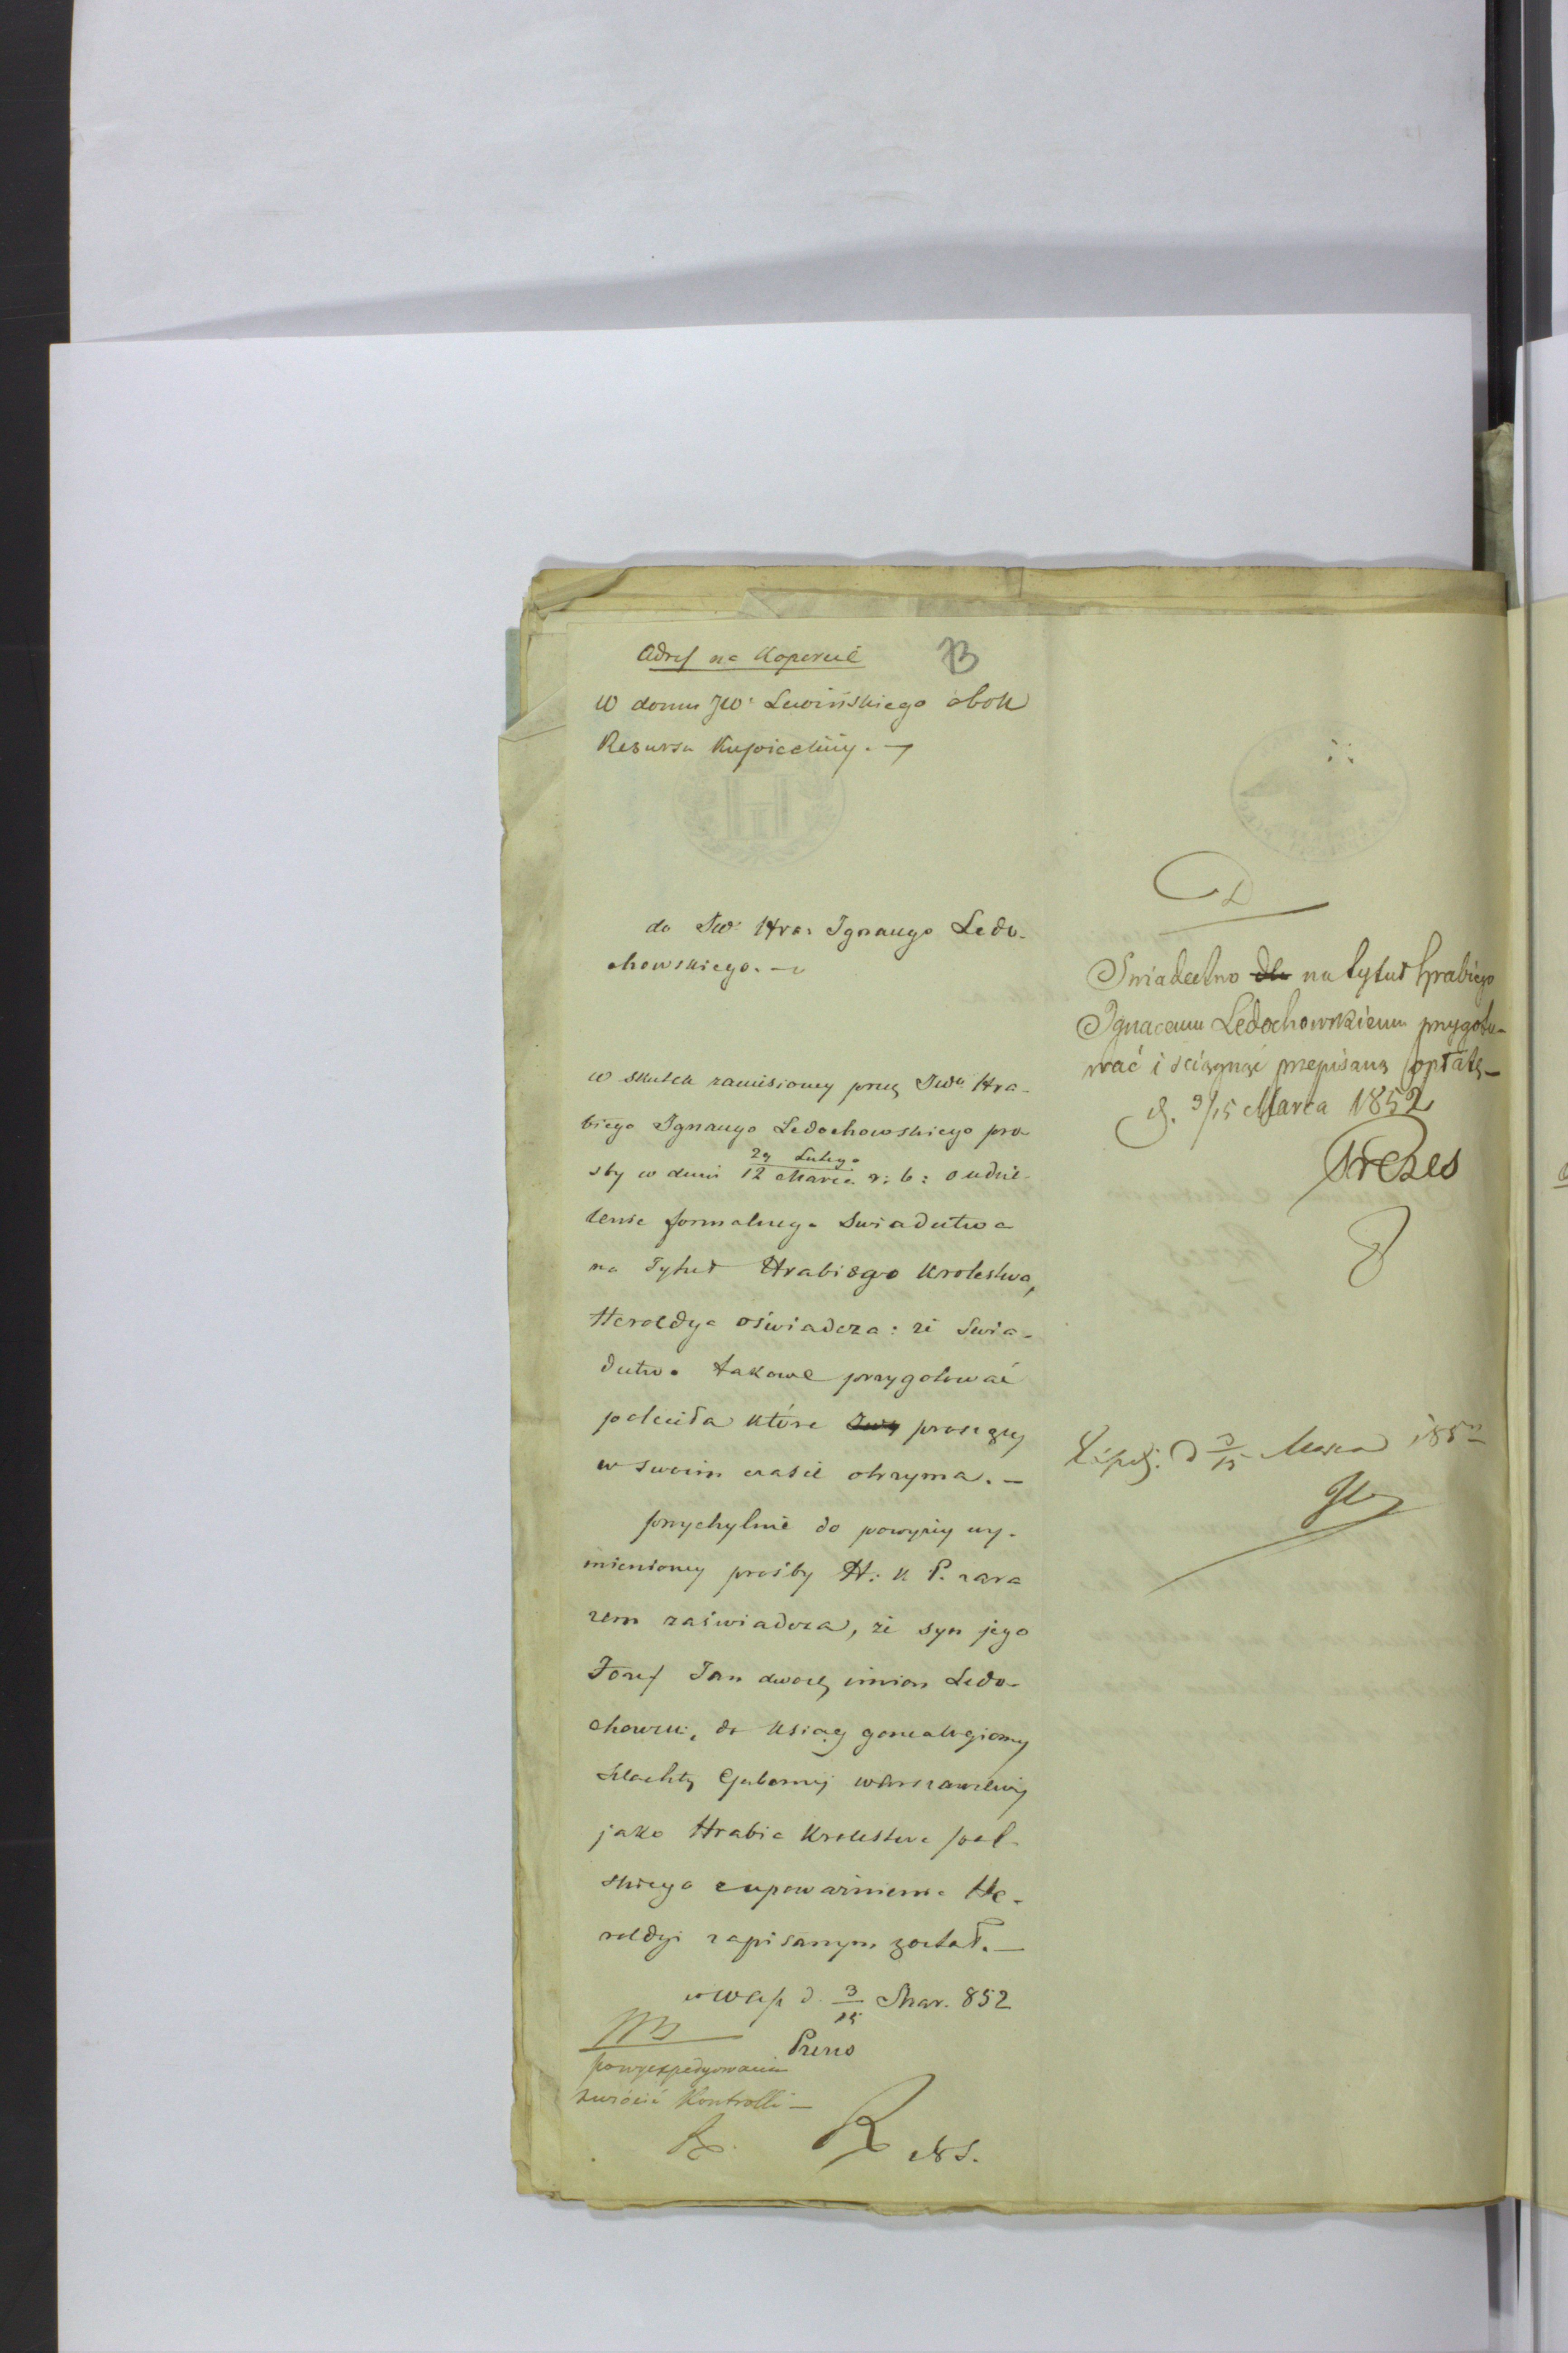 Adres na Kopercie
73
W domu JW. Lewińskiego obok
Resursu Kupieckiéy. —
do JW. Hra: Ignacego Ledo-
chowskiego. —
w skutek zaniesioney przez JWo Hra-
biego Ignacego Ledochowskiego pro-
śby w dniu 29 Lutego / 12 Marca r: b: o udzie-
lenie formalnego Swiadectwa
na Tytuł Hrabiego Krolestwa,
Heroldya oświadcza: że Swia-
dectwo takowe przygotować
poleciła które proszący
w swoim czasie otrzyma. —
przychylnie do powyżey wy-
mienioney prośby H: K P. zara
zem zaświadcza, że syn jego
Jozef Jan dwoch imion Ledo-
chowski, do Ksiąg genealogiczney
szlachty Gubernij warszawskiej
jako Hrabia Krolestwa pol-
skiego z upoważnienia He-
roldyi zapisanym został. —
w Wa/s d. 3/15 Mar. 852
Prezes
po wyexpedyowaniu
zwrócić Kontrolli —
R
NS.
D
Swiadectwo dla na tytuł hrabiego
Ignacemu Ledochowskiemu przygoto-
wać i ściągnąć przepisaną opłatę —
d. 3/15 Marca 1852
Prezes
Exped. d 3/15 Marca 1852